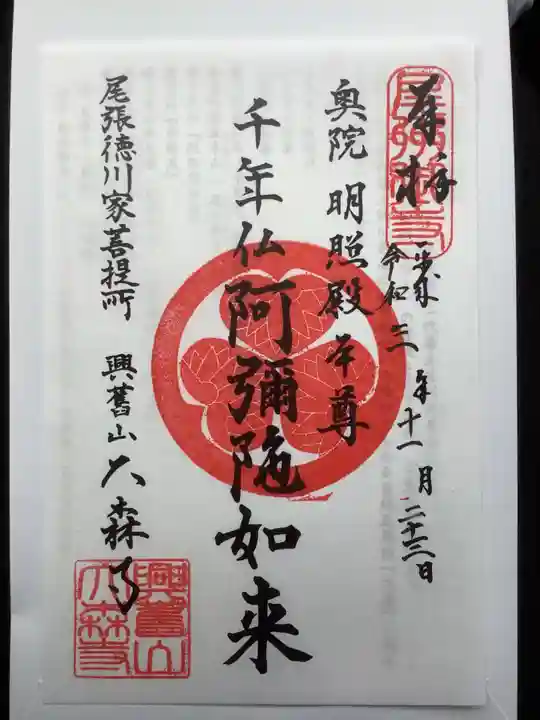 奉拝
令和三年十一月二十三日
奥院 明照殿 本尊
千年仏 阿彌陀如来
尾張徳川家菩提所 興舊山 大森寺
興舊山
大森寺